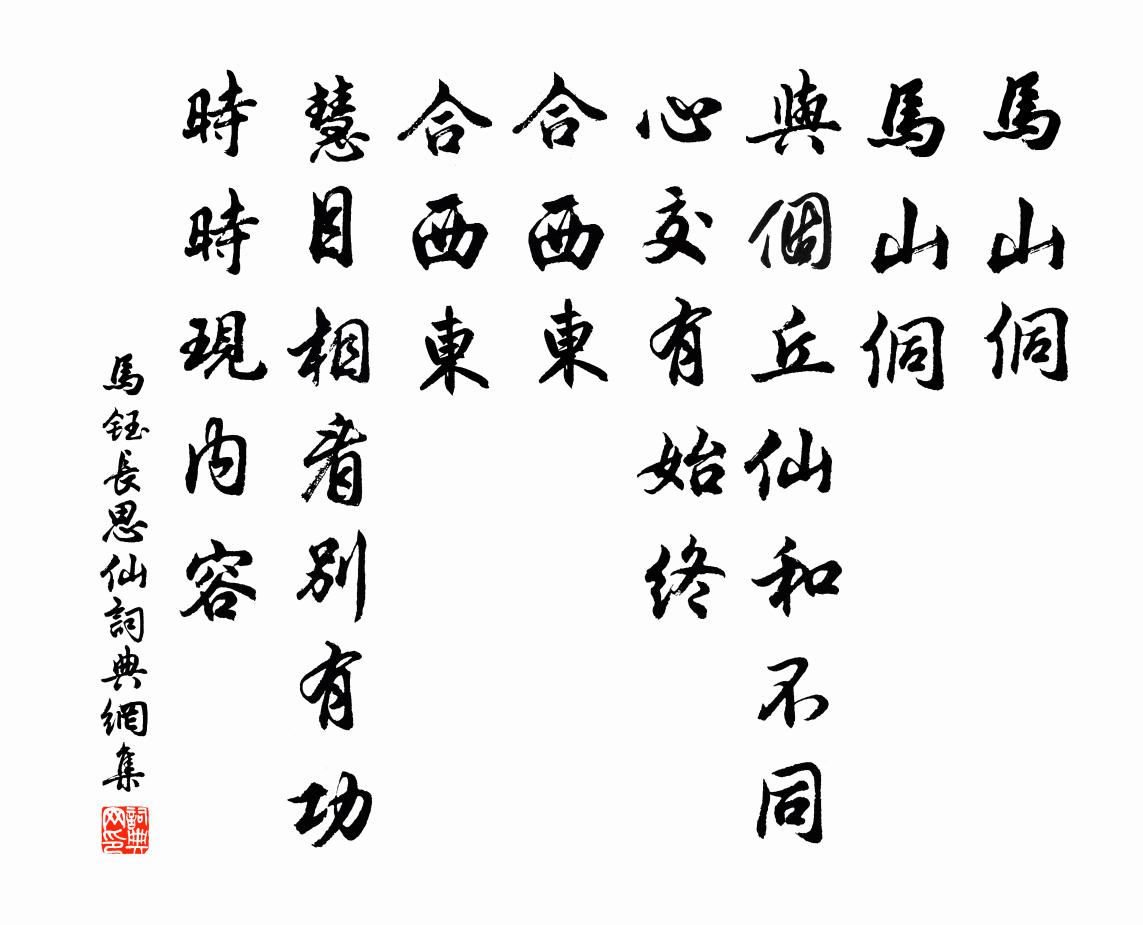 馬山侗
馬山侗
與個丘仙和不同
心交有始終
合西東
合西東
慧目相看別有功
時時現内容
馬鈺長思仙詞典網集
詞典网印